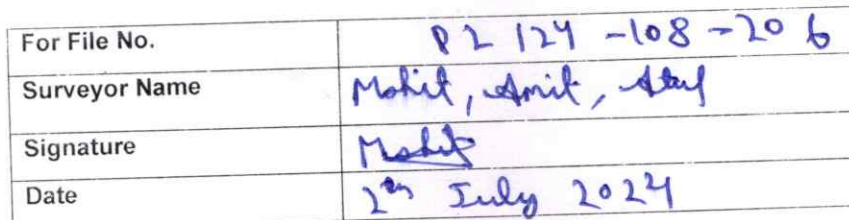 For File No. P2 124-108-206
Surveyor Name Mohit, Amit, Atul
Signature Mohit
Date 2nd July 2024